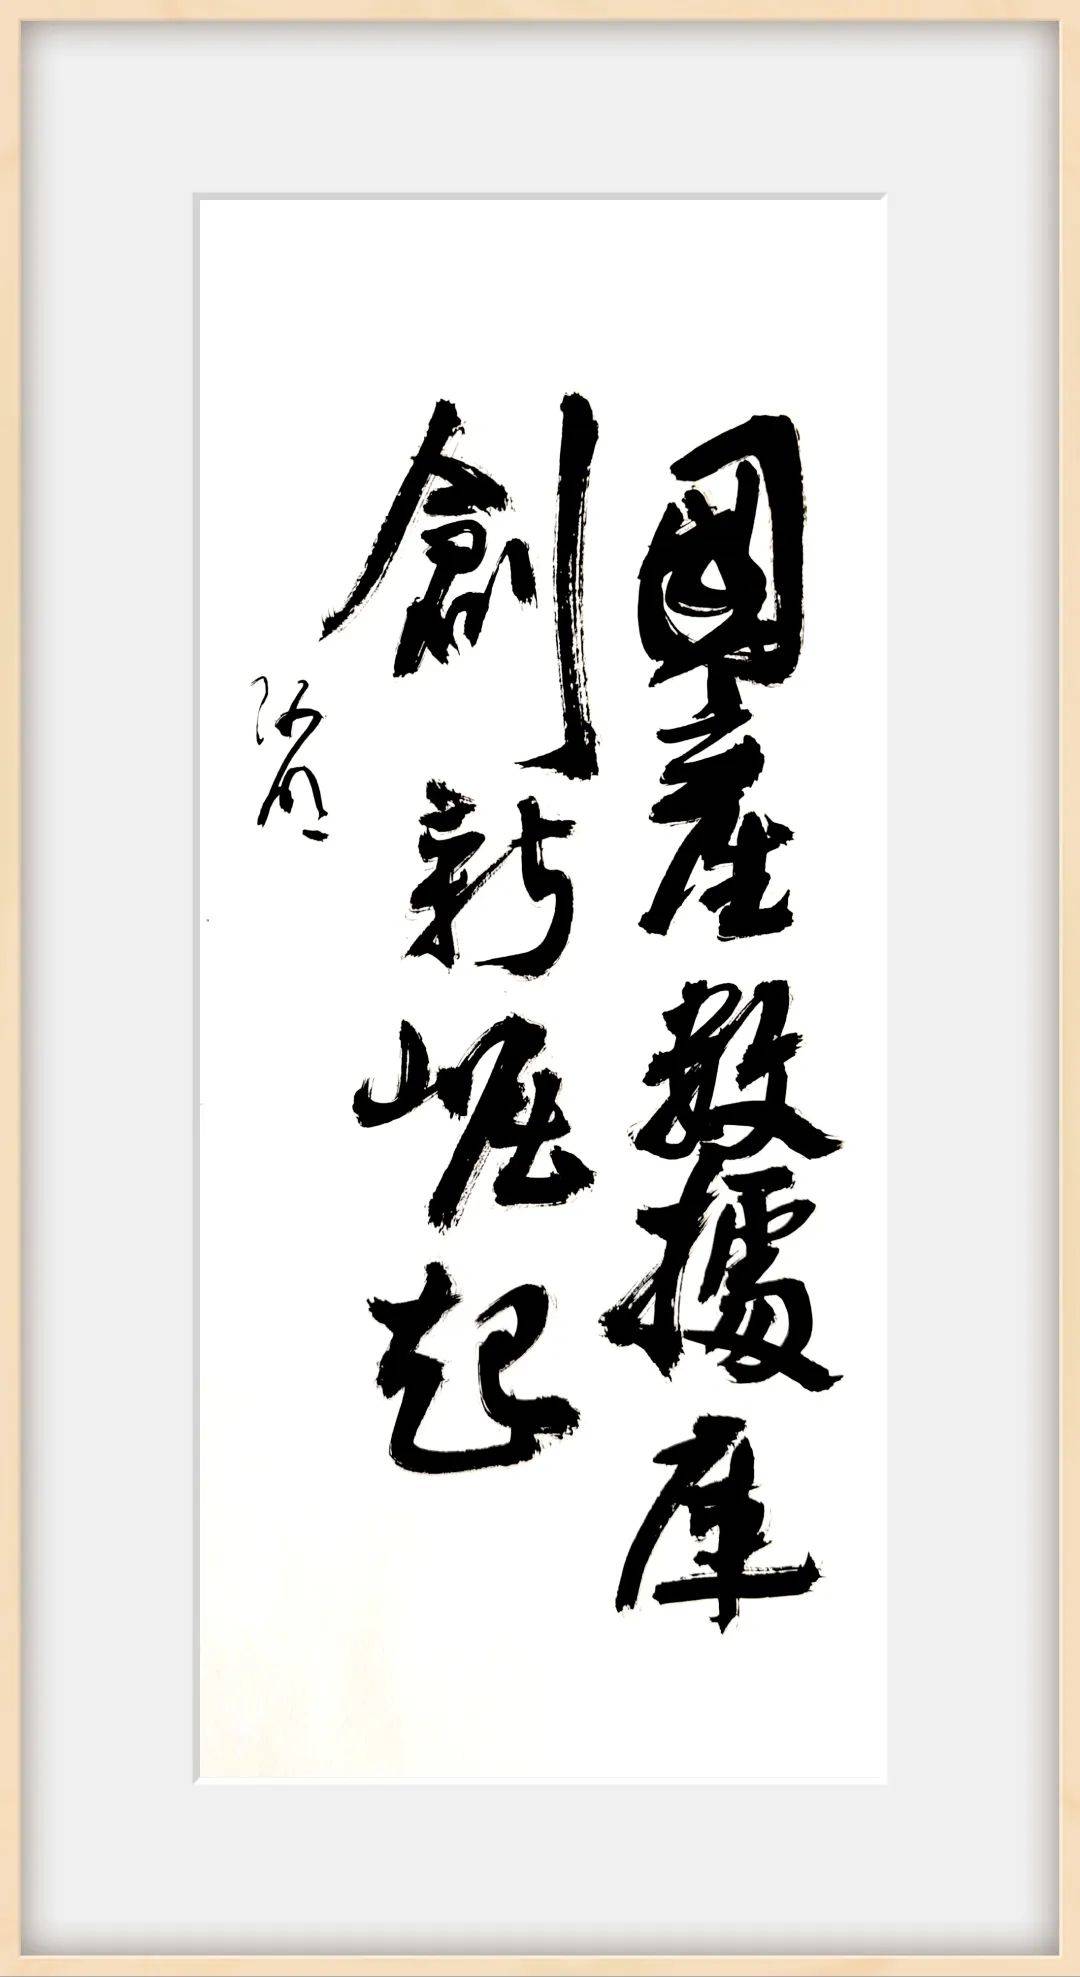 國產數據庫
創新崛起